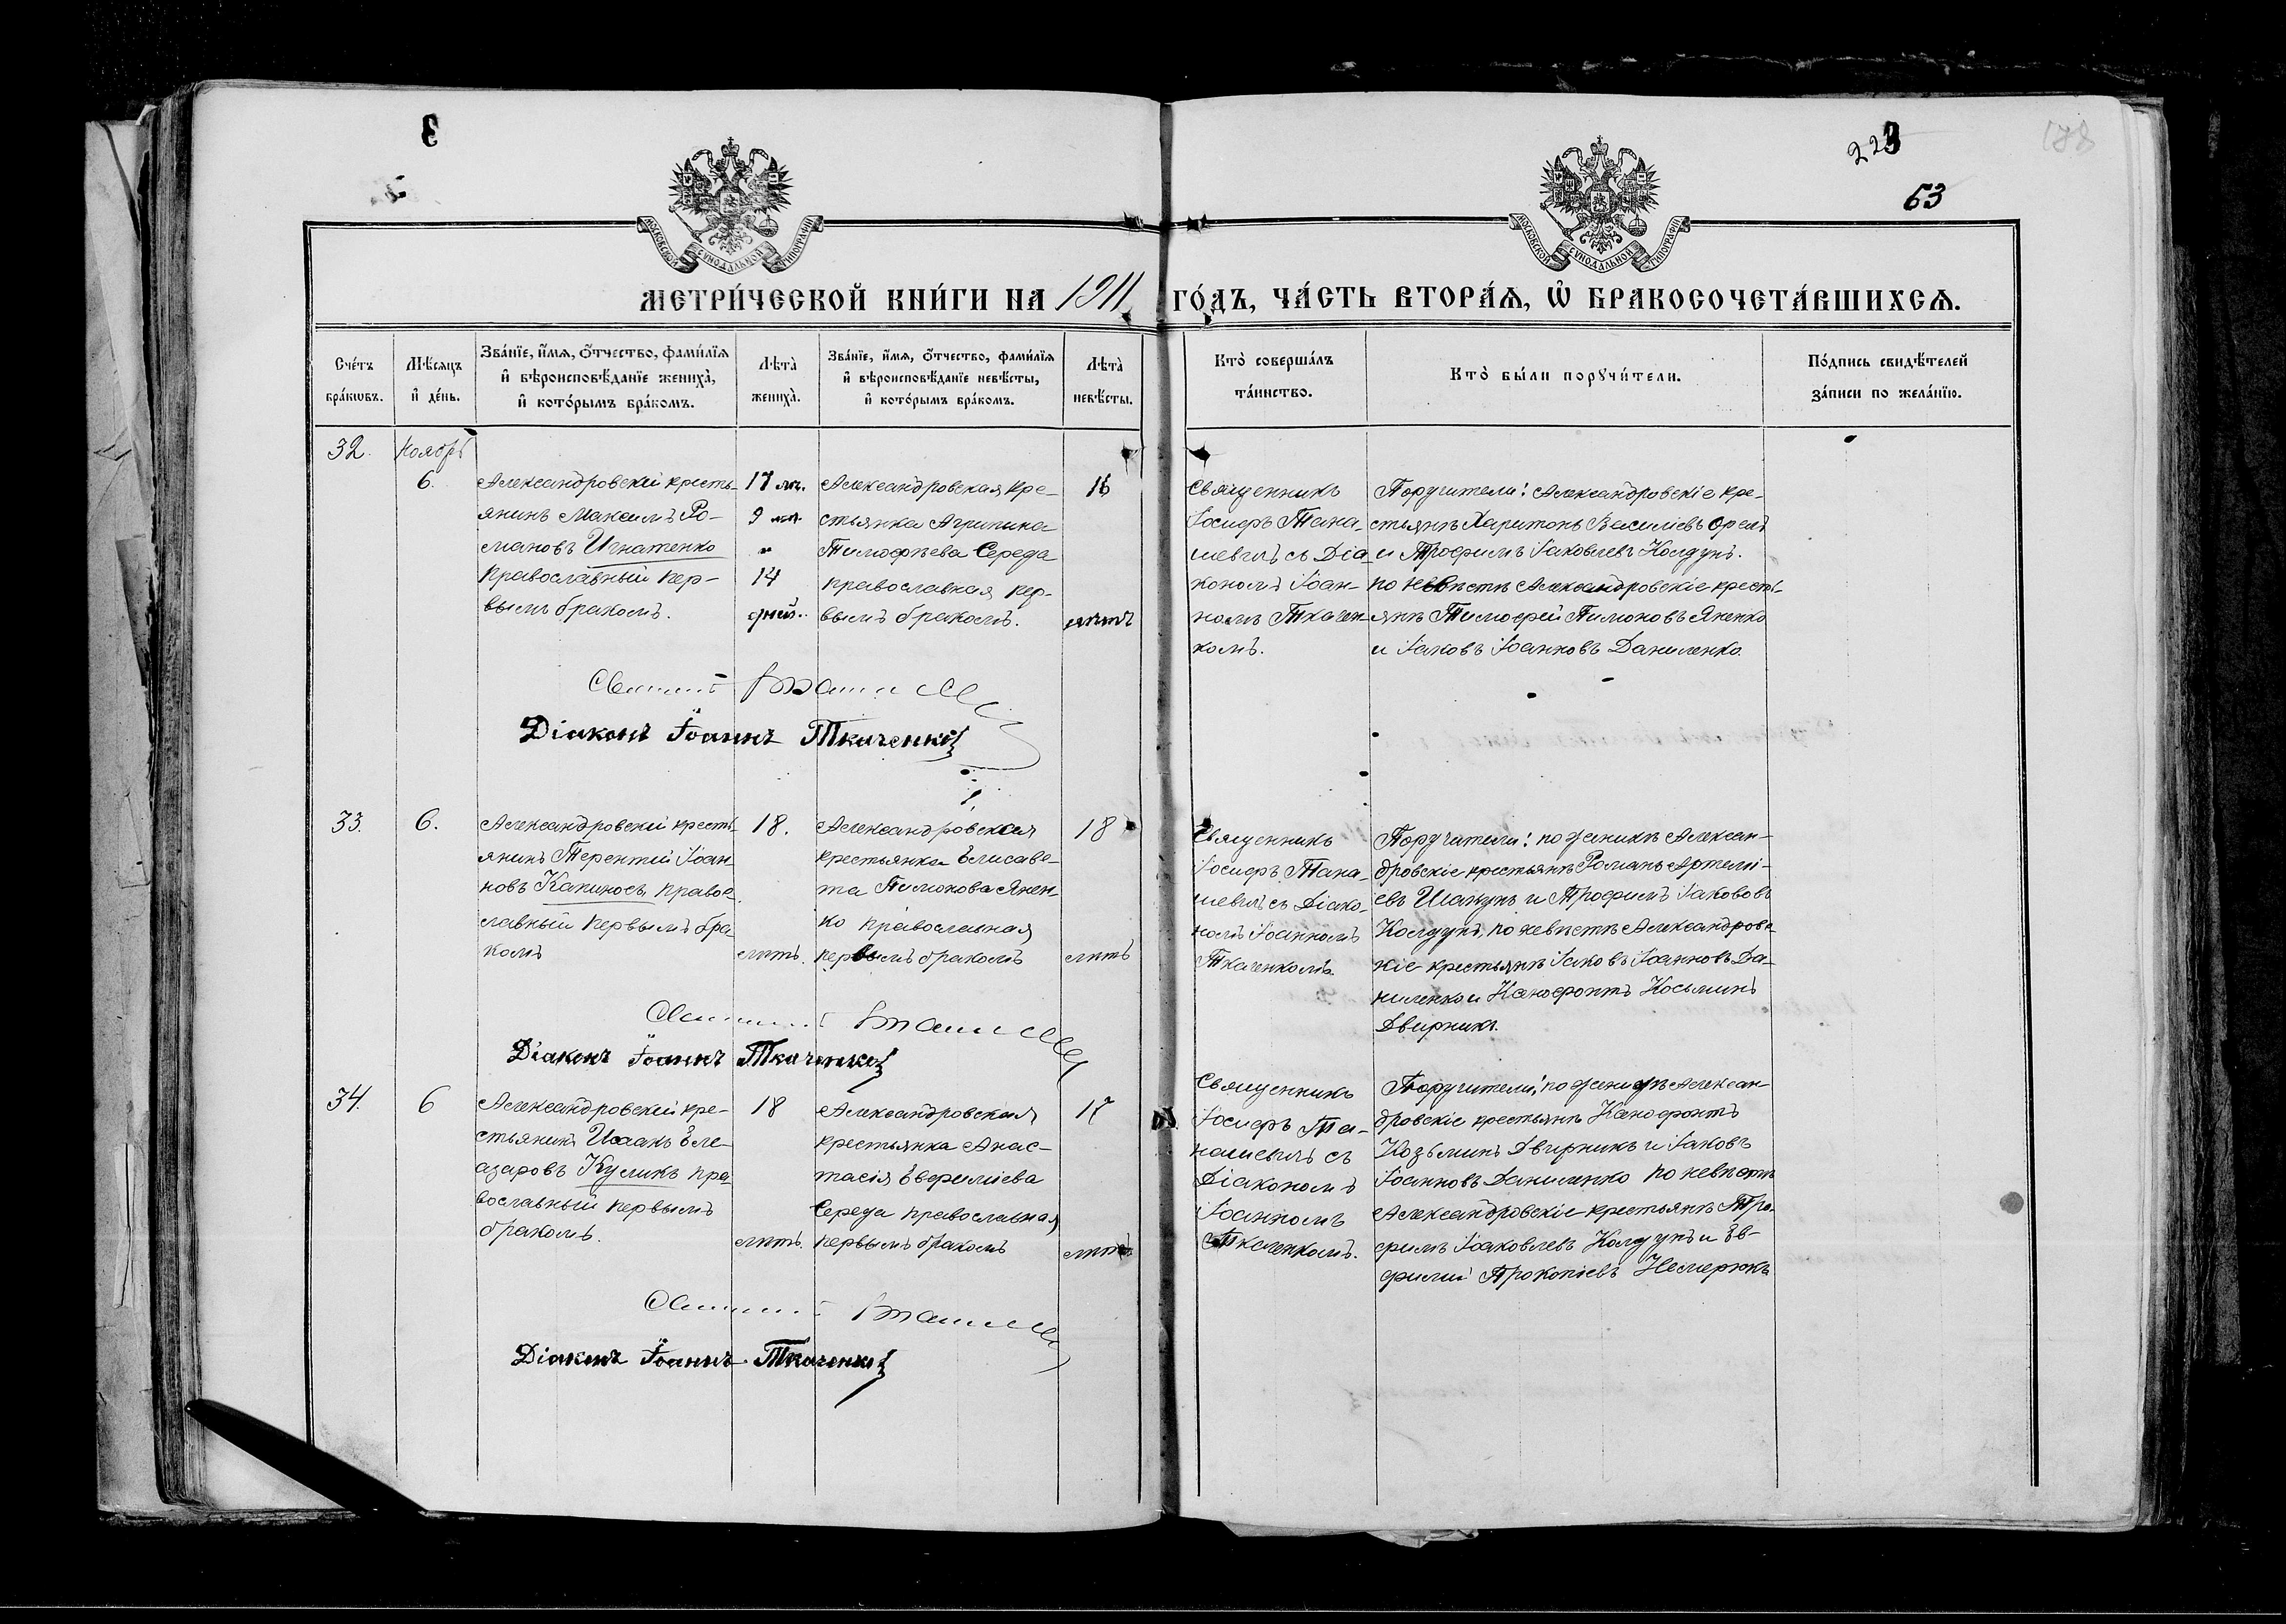 223
53
МОСКОВСКОЙ СѴНОДАЛЬНОЙ ТИПОГРАФІИ
МОСКОВСКОЙ СѴНОДАЛЬНОЙ ТИПОГРАФІИ
МЕТРИ́ЧЕСКОЙ КНИ́ГИ НА 1911 ГО́ДЪ, ЧА́СТЬ ВТОРА́Ѧ, Ѽ БРАКОСОЧЕТА́ВШИХСѦ.
Сче́тъ
бра́кѡвъ.
Мѣ́сѧцъ
и҆ де́нь.
Зва́нїе, и҆́мѧ, ѻ҆́тчество, фами́лїѧ
и҆ вѣроисповѣ́данїе жениха̀,
и҆ кото́рымъ бра́комъ.
Лѣта̀
жениха̀.
Зва́нїе, и҆́мѧ, ѻ҆́тчество, фами́лїѧ
и҆ вѣроисповѣ́данїе невѣ́сты,
и҆ кото́рымъ бра́комъ.
Лѣта̀
невѣ́сты.
Кто̀ соверша́лъ
та́инство.
Кто̀ бы́ли порꙋчи́тели.
По́дпись свидѣ́телей
за́писи по жела́нїю.
32.
Ноябрь
6.
Александровскій кресть-
янинъ Максимъ Ро-
мановъ Игнатенко
православный пер-
вымъ бракомъ.
17 лѣт.
9 мѣс.
и
14
дней.
Александровская кре-
стьянка Агрипина
Тимофѣева Середа
православная пер-
вымъ бракомъ.
16
лѣтъ
Священникъ
Іосифъ Тана-
шевичъ съ Діа-
кономъ Іоан-
номъ Ткачен-
комъ.
Поручители: Александровскіе кре-
стьянѣ Харитонъ Василіевъ Орелъ
и Трофимъ Іаковлевъ Колдунъ.
по невѣстѣ Александровскіе кресть-
янѣ Тимофей Пимоновъ Яненко
и Іаковъ Іоанновъ Даниленко.
Діаконъ Іоаннъ Ткаченко
33.
6.
Александровскій кресть-
янинъ Терентій Іоан-
новъ Капиносъ, право-
славный первымъ бра-
комъ
18.
лѣтъ.
Александровская
крестьянка Елисаве-
та Пимонова Янен-
ко православная
первымъ бракомъ
18
лѣтъ
Священникъ
Іосифъ Тана-
шевичъ съ Діако-
номъ Іоанномъ
Ткаченкомъ.
Поручители: по женихѣ Алексан-
дровскіе крестьянѣ Романъ Артемі-
евъ Шапунъ и Трофимъ Іакововъ
Колдунъ, по невѣстѣ Александровс-
кіе крестьянѣ Іаковъ Іоанновъ Да-
ниленко и Ксенофонтъ Косьминъ
Двирникъ.
Діаконъ Іоаннъ Ткаченко
34.
6
Александровскій кре-
стьянинъ Исаакъ Еле-
азаровъ Куликъ пра-
вославный первымъ
бракомъ.
18
лѣтъ.
Александровская
крестьянка Анас-
тасія Евфиміева
Середа православная
первымъ бракомъ
17
лѣтъ
Священникъ
Іосифъ Та-
нашевичъ съ
Діакономъ
Іоанномъ
Ткаченкомъ.
Поручители: по женихѣ Алексан-
дровскіе крестьянѣ Ксенофонтъ
Козьминъ Двирникъ и Іаковъ
Іоанновъ Даниленко по невѣстѣ
Александровскіе крестьянѣ Тро-
фимъ Іаковлевъ Колдунъ и Ев-
фимій Прокопіевъ Немержкъ
Діаконъ Іоаннъ Ткаченко